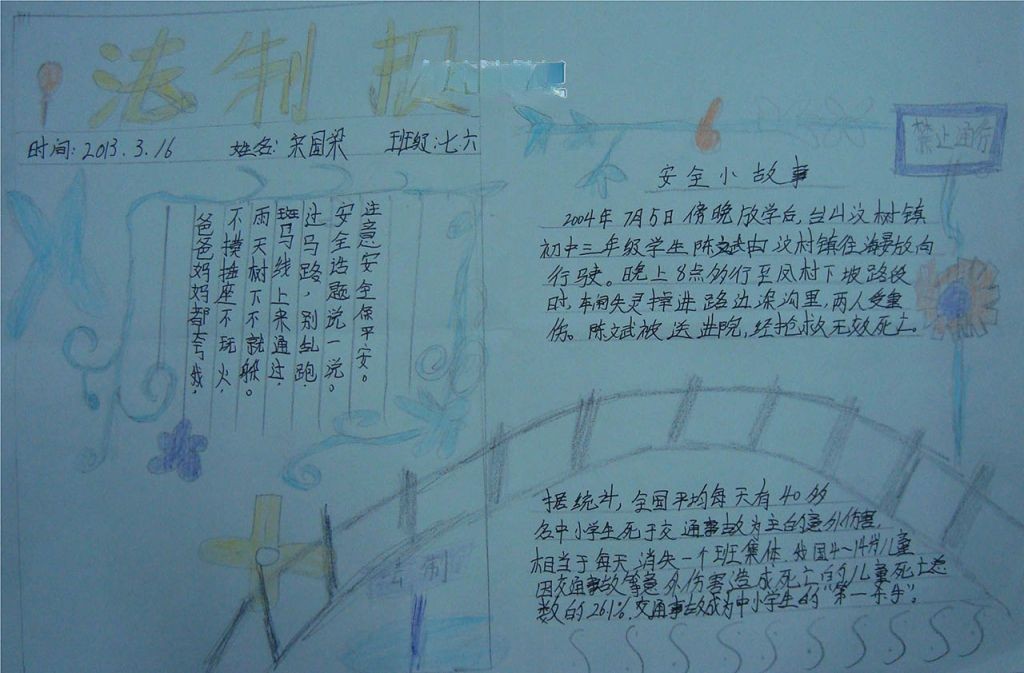 法制报
时间：2013.3.16 姓名：宋国梁 班级：七六
注意安全保平安。
安全话题说一说。
过马路，别乱跑，
斑马线上来通过，
雨天树下不就躲。
不摸插座不玩火，
爸爸妈妈都夸我。
禁止通行
安全小故事
2004年7月5日傍晚放学后，台山汶村镇
初中三年级学生陈文武由汶村镇往海晏放向
行驶。晚上8点多行至凤村下坡路段
时，车闸失灵掉进路边深沟里，两人受重
伤。陈文武被送进院，经抢救无效死亡。
据统计，全国平均每天有40多
名中小学生死于交通事故为主的意外伤害，
相当于每天消失一个班集体 我国4~14岁儿童
因交通事故等意外伤害造成死亡的儿童死亡总
数的26.1%，交通事故成为中小学生的“第一杀手”。
法制